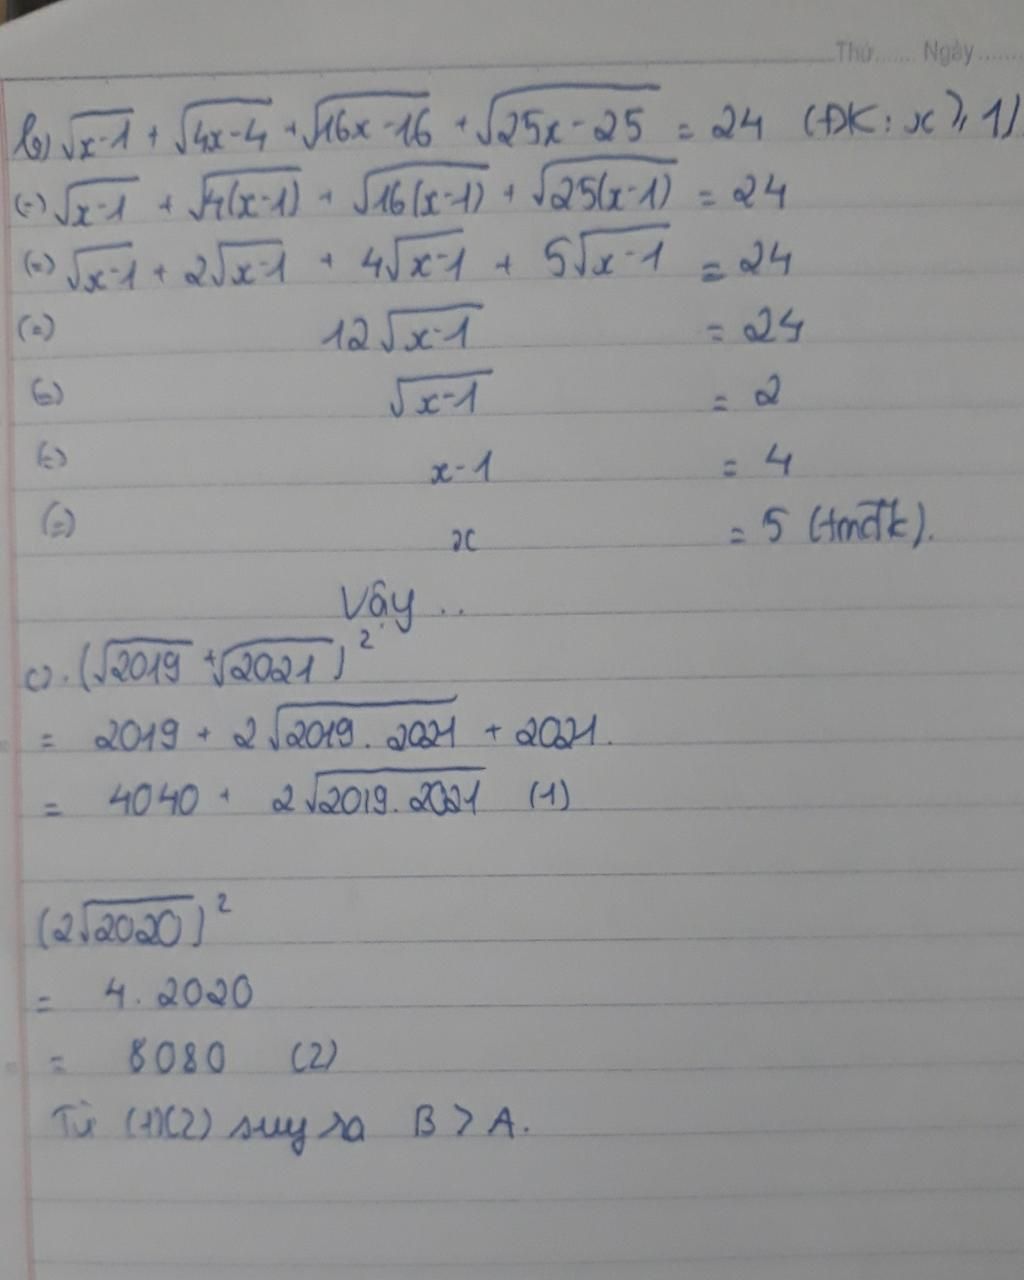 Thứ....... Ngày.......
b) √(x-1) + √(4x-4) + √(16x-16) + √(25x-25) = 24 (ĐK: x ≥ 1)
(=) √(x-1) + √(4(x-1)) + √(16(x-1)) + √(25(x-1)) = 24
(=) √(x-1) + 2√(x-1) + 4√(x-1) + 5√(x-1) = 24
(=) 12√(x-1) = 24
(=) √(x-1) = 2
(=) x-1 = 4
(=) x = 5 (tmđk).
Vậy ..
c). (√2019 + √2021)²
= 2019 + 2√(2019.2021) + 2021.
= 4040 + 2√(2019.2021) (1)
(2√2020)²
= 4.2020
= 8080 (2)
Từ (1)(2) suy ra B > A.